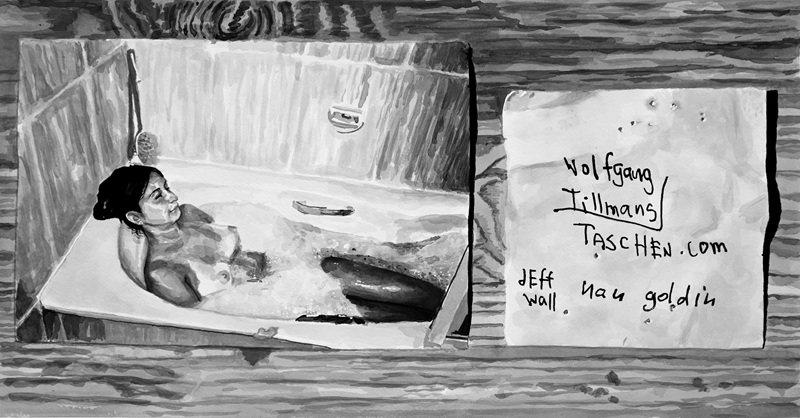 Wolfgang
Tillmans
TASCHEN.com
JEFF nan goldin
Wall